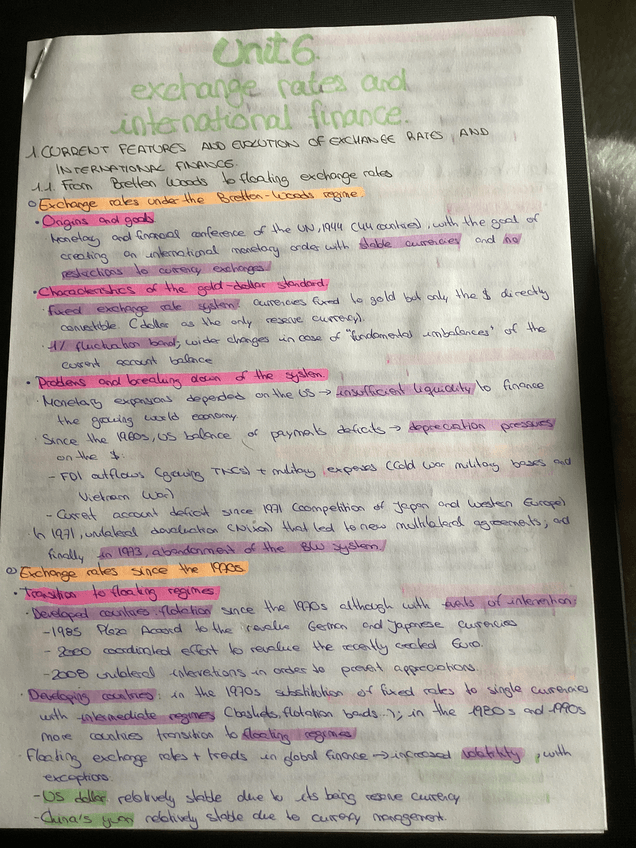 Unit 6.
exchange rates and
international finance.
1. CURRENT FEATURES AND EVOLUTION OF EXCHANGE RATES, AND
INTERNATIONAL FINANCE.
1.1. From Bretten Woods to floating exchange rates
Exchange rates under the Bretton-Woods regime.
• Origins and goals
Monetary and financial conference of the UN, 1944 (44 countries), with the goal of
creating an international monetary order with stable currencies and no
restrictions to currency exchanges
• Characteristics of the gold-dollar standard
· fixed exchange rate system: currencies fixed to gold but only the $ directly
convertible (dollar as the only reserve currency).
· 1% fluctuation band; wider changes in case of "fundamental imbalances" of the
current account balance
• Problems and breaking down of the system.
· Monetary expansions depended on the US → insufficient liquidity to finance
the growing world economy.
· Since the 1960s, US balance of payments deficits → depreciation pressures
on the $:
- FDI outflows (growing TNCs) + military expenses (Cold war military bases and
Vietnam War)
- Current account deficit since 1971 (competition of Japan and Western Europe)
In 1971, unilateral devaluation (Nixon) that led to new multilateral agreements, and
finally, in 1973, abandonment of the BW system.
Exchange rates since the 1970s
• Transition to floating regimes
· Developed countries: flotation since the 1970s although with events of intervention:
- 1985 Plaza Accord to the revalue German and Japanese currencies
- 2000 coordinated effort to revalue the recently created Euro.
- 2008 unilateral interventions in order to prevent appreciations.
· Developing countries: in the 1970s substitution of fixed rates to single currencies
with intermediate regimes (baskets, flotation bands...); in the 1980s and 1990s
more countries transition to floating regimes
Floating exchange rates + trends in global finance → increased volatility, with
exceptions.
- US dollar: relatively stable due to its being reserve currency
- China's yuan relatively stable due to currency management.